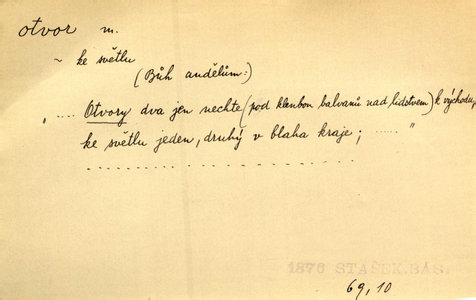 otvor m.
~ ke světlu
(Bůh andělům:)
„ ..... Otvory dva jen nechte (pod klenbou balvanů nad lidstvem) k východu,
ke světlu jeden, druhý v blaha kraje; ...... "
. . . . . . . . . . . . . . . . . . . .
1876 STAŠEK. BÁS.
69, 10